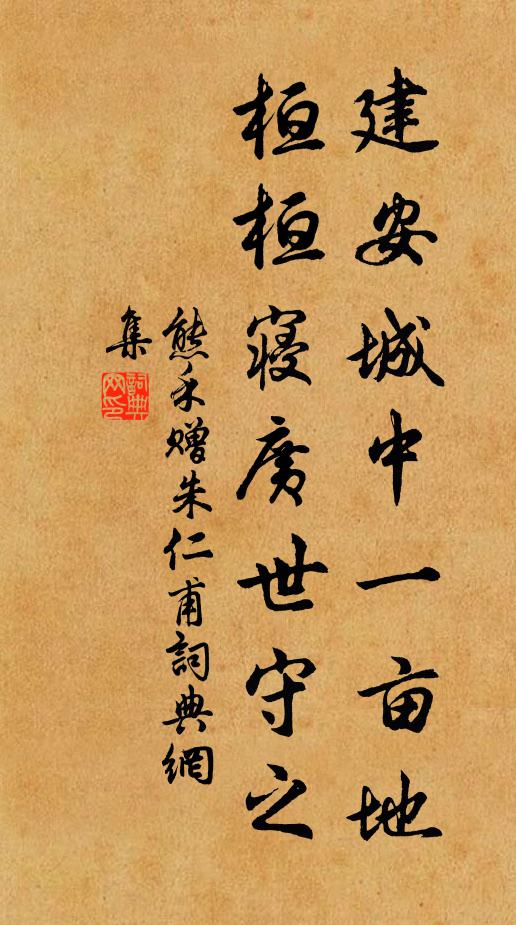 建安城中一亩地
桓桓寝廣世守之
熊禾赠朱仁甫詞典網
集
詞典網印